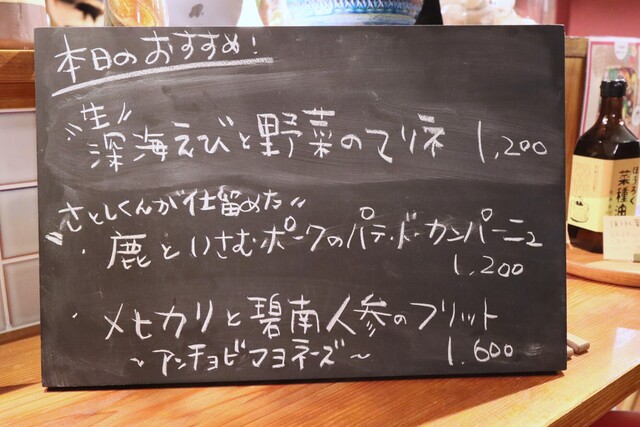 本日のおすすめ!
〃生〃
深海えびと野菜のテリネ 1,200
〃さとしくんが仕留めた〃
・鹿といさむポークのパテ・ド・カンパーニュ
1,200
・メヒカリと碧南人参のフリット
~アンチョビマヨネーズ~ 1.600
ほうろく
菜種油